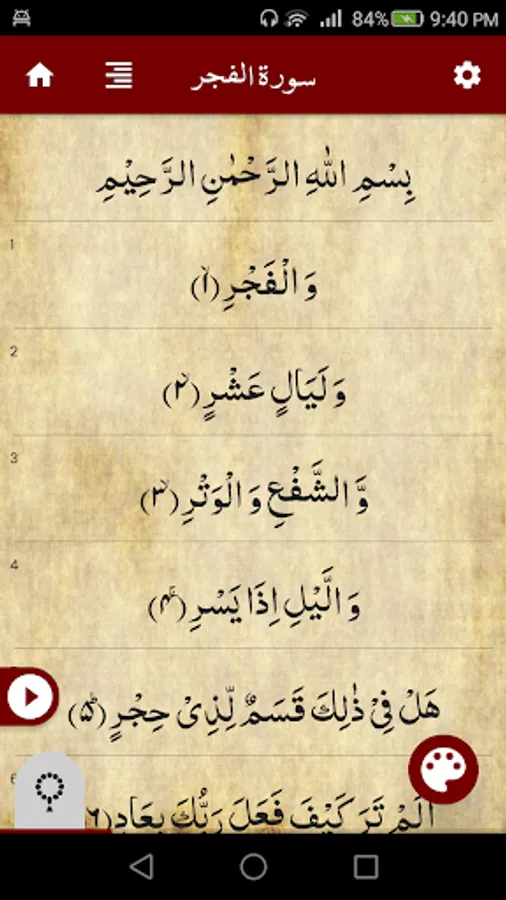 84% 9:40 PM
سورة الفجر
بِسْمِ اللهِ الرَّحْمٰنِ الرَّحِيْمِ
1
وَالْفَجْرِ (۱ۙ)
2
وَلَيَالٍ عَشْرٍ (۲ۙ)
3
وَّالشَّفْعِ وَالْوَتْرِ (۳ۙ)
4
وَالَّيْلِ اِذَا يَسْرِ (۴ۚ)
هَلْ فِيْ ذٰلِكَ قَسَمٌ لِّذِيْ حِجْرٍ (۵ؕ)
6
اَلَمْ تَرَ كَيْفَ فَعَلَ رَبُّكَ بِعَادٍ (۶